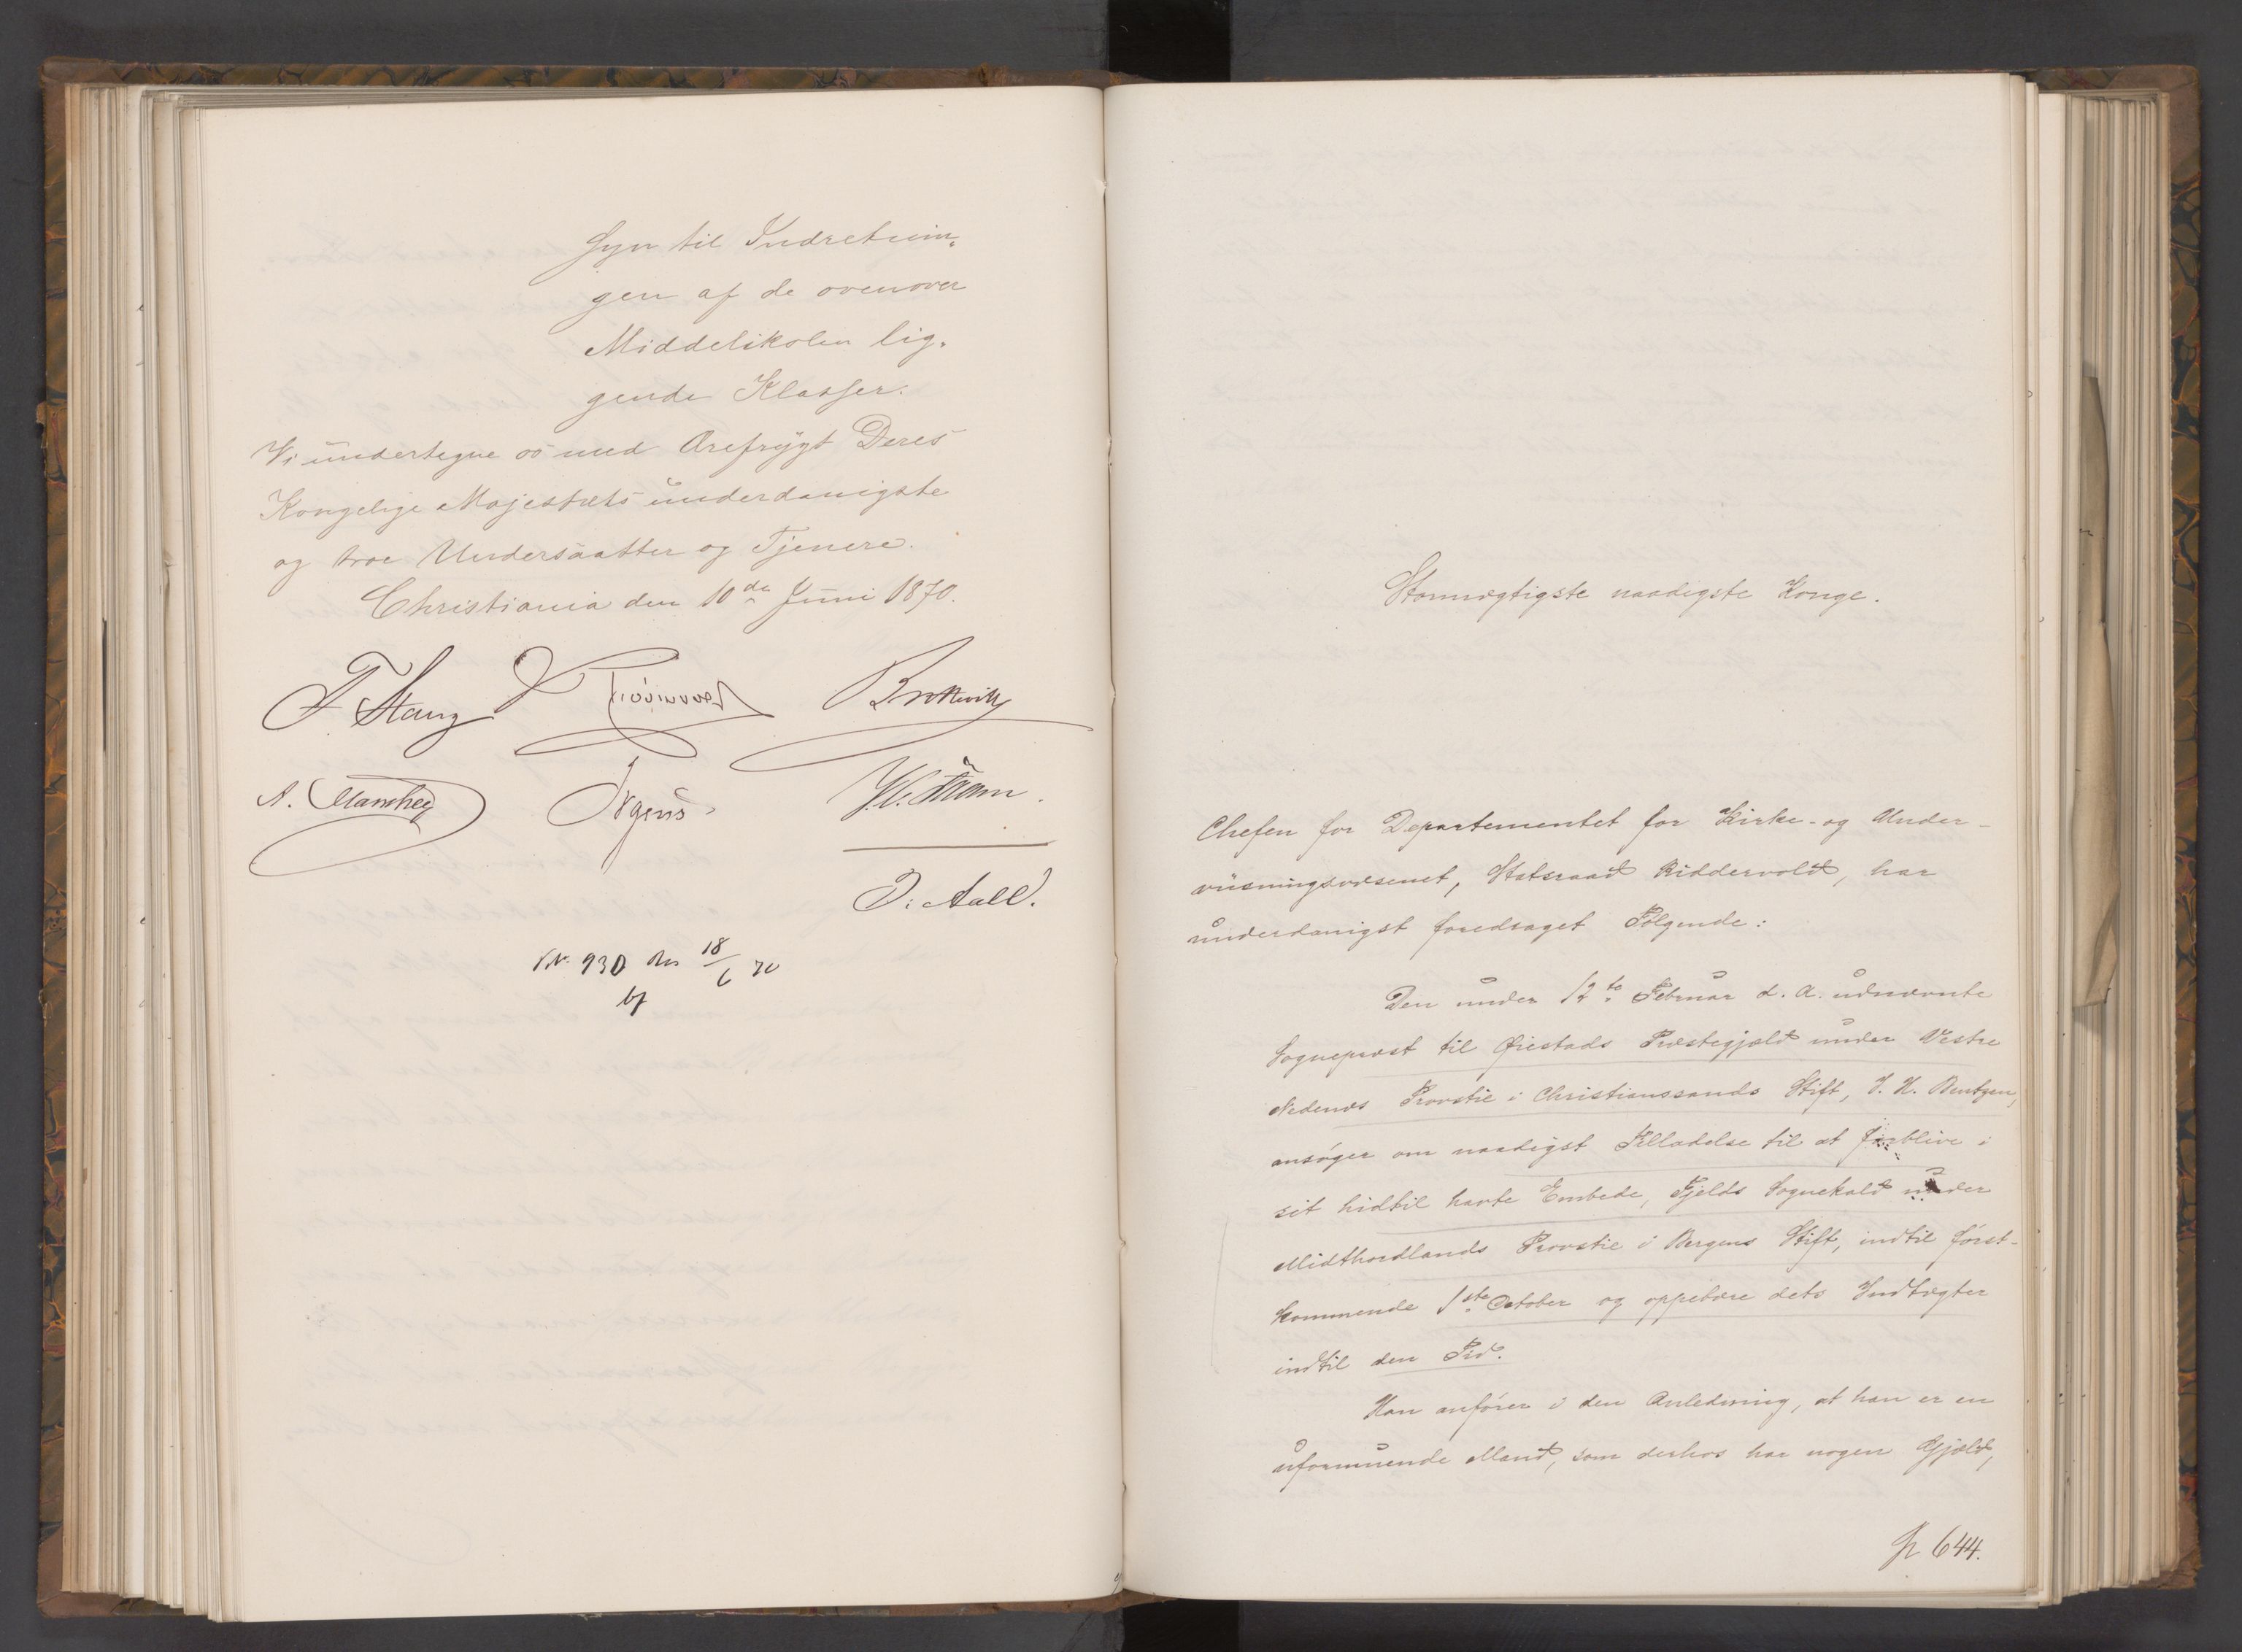 Syn til Indretnin-
gen af de ovenover
Middelskolen lig-
gende Klasser.
Vi undertegne os med Ærefrygt Deres
Kongelige Majestæts underdanigste
og troe Undersaatter og Tjenere.
Christiania den 10de Juni 1870.
F. Stang Bretteville
A. Manthey Irgens
J. Aall.
No. 930 den 18/6 70
Stormægtigste naadigste Konge.
Chefen for Departementet for Kirke- og Under-
viisningsvæsenet, Statsraad Riddervold, har
underdanigst foredraget Følgende:
Den under 12te Februar d. A. udnævnte
Sognepræst til Øiestads Præstegjæld under Vestre
Nedenæs Provstie i Christianssands Stift, J. H. Bentzen,
ansøger om naadigst Tilladelse til at forblive i
sit hidtil havte Embede, Fjelds Sognekald under
Midthordlands Provstie i Bergens Stift, indtil først-
kommende 1ste October og oppebære dets Indtægter
indtil den Tid.
Han anfører i den Anledning, at han er en
uformuende Mand, som derhos har nogen Gjæld,
644.